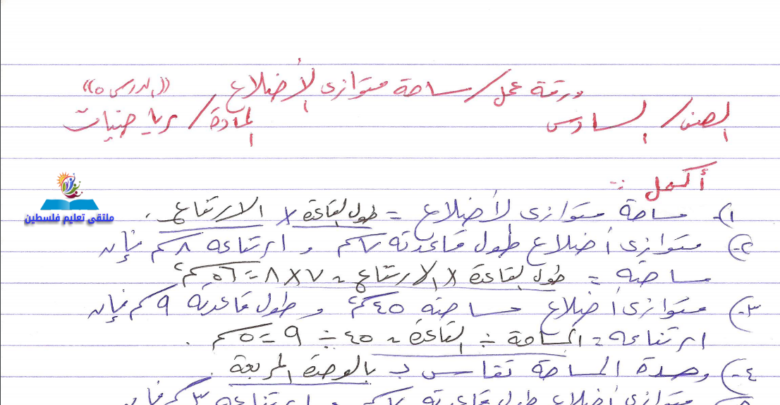 ورقة عمل / مساحة متوازي الأضلاع ((الدرس ٥))
الصف / السادس المادة / رياضيات
ملتقى تعليم فلسطين
أكمل :-
١- مساحة متوازي لأضلاع = طول القاعدة × الارتفاع .
٢- متوازي أضلاع طول قاعدته ٧سم و ارتفاعه ٨سم فإن
مساحته = طول القاعدة × الارتفاع = ٧×٨ = ٥٦سم٢
٣- متوازي أضلاع مساحته ٤٥سم٢ و طول قاعدته ٩سم فإن
ارتفاعه = المساحة ÷ القاعدة = ٤٥ ÷ ٩ = ٥سم .
٤- وحدة المساحة تقاس ب بالوحدة المربعة .
متوازي أضلاع طول قاعدته و ارتفاعه ٣سم فإن